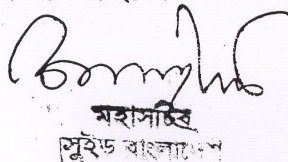 মহাসচিব
সুইড বাংলাদেশ